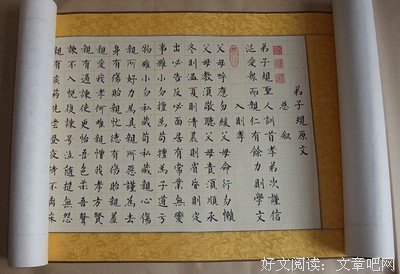 弟子規原文
总叙
弟子規聖人訓首孝弟次謹信
泛愛衆而親仁有餘力則學文
入則孝
父母呼應勿緩父母命行勿懶
父母教須敬聽父母責須順承
冬則温夏則凊晨則省昏則定
出必告反必面居有常業無變
事雖小勿擅為苟擅為子道虧
物雖小勿私藏苟私藏親心傷
親所好力為具親所惡謹為去
身有傷貽親憂德有傷貽親羞
親愛我孝何難親憎我孝方賢
親有過諫使更怡吾色柔吾聲
諫不入悅復諫號泣隨撻無怨
親有疾藥先嘗晝夜侍不離床
好文阅读：文章吧网